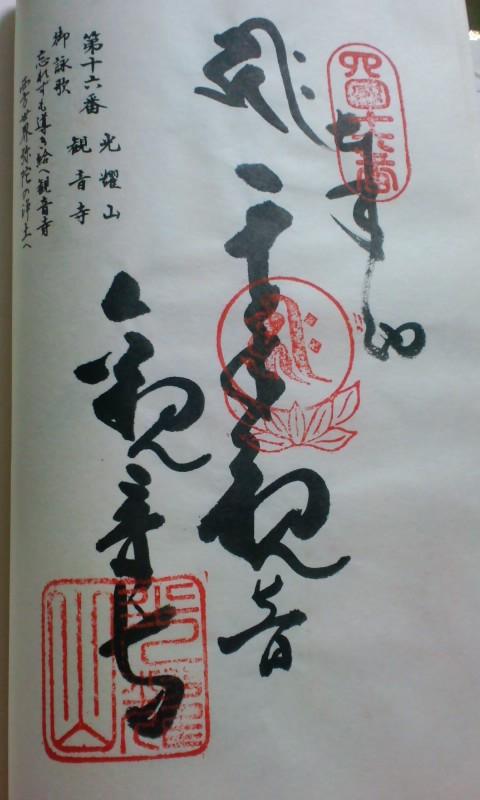 四国十六番
奉拝
千手観音
観音寺
光耀山
第十六番 光耀山
観音寺
御詠歌
忘れずも導き給へ観音寺
西方世界弥陀の浄土へ